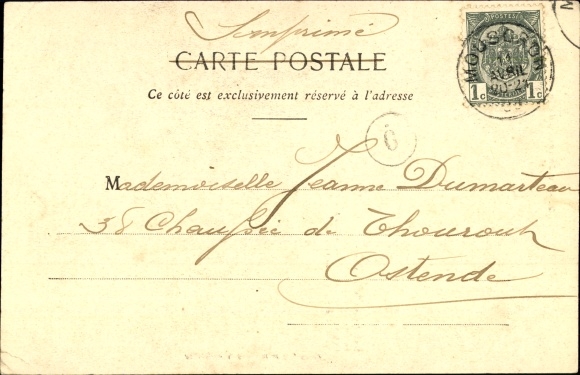 Imprimé
CARTE POSTALE
Ce côté est exclusivement réservé à l'adresse
POSTES
MOUSCRON
14
AVRIL
1c 1c
6
Mademoiselle Jeanne Dumarteau
38 Chaussée de Thourout
Ostende